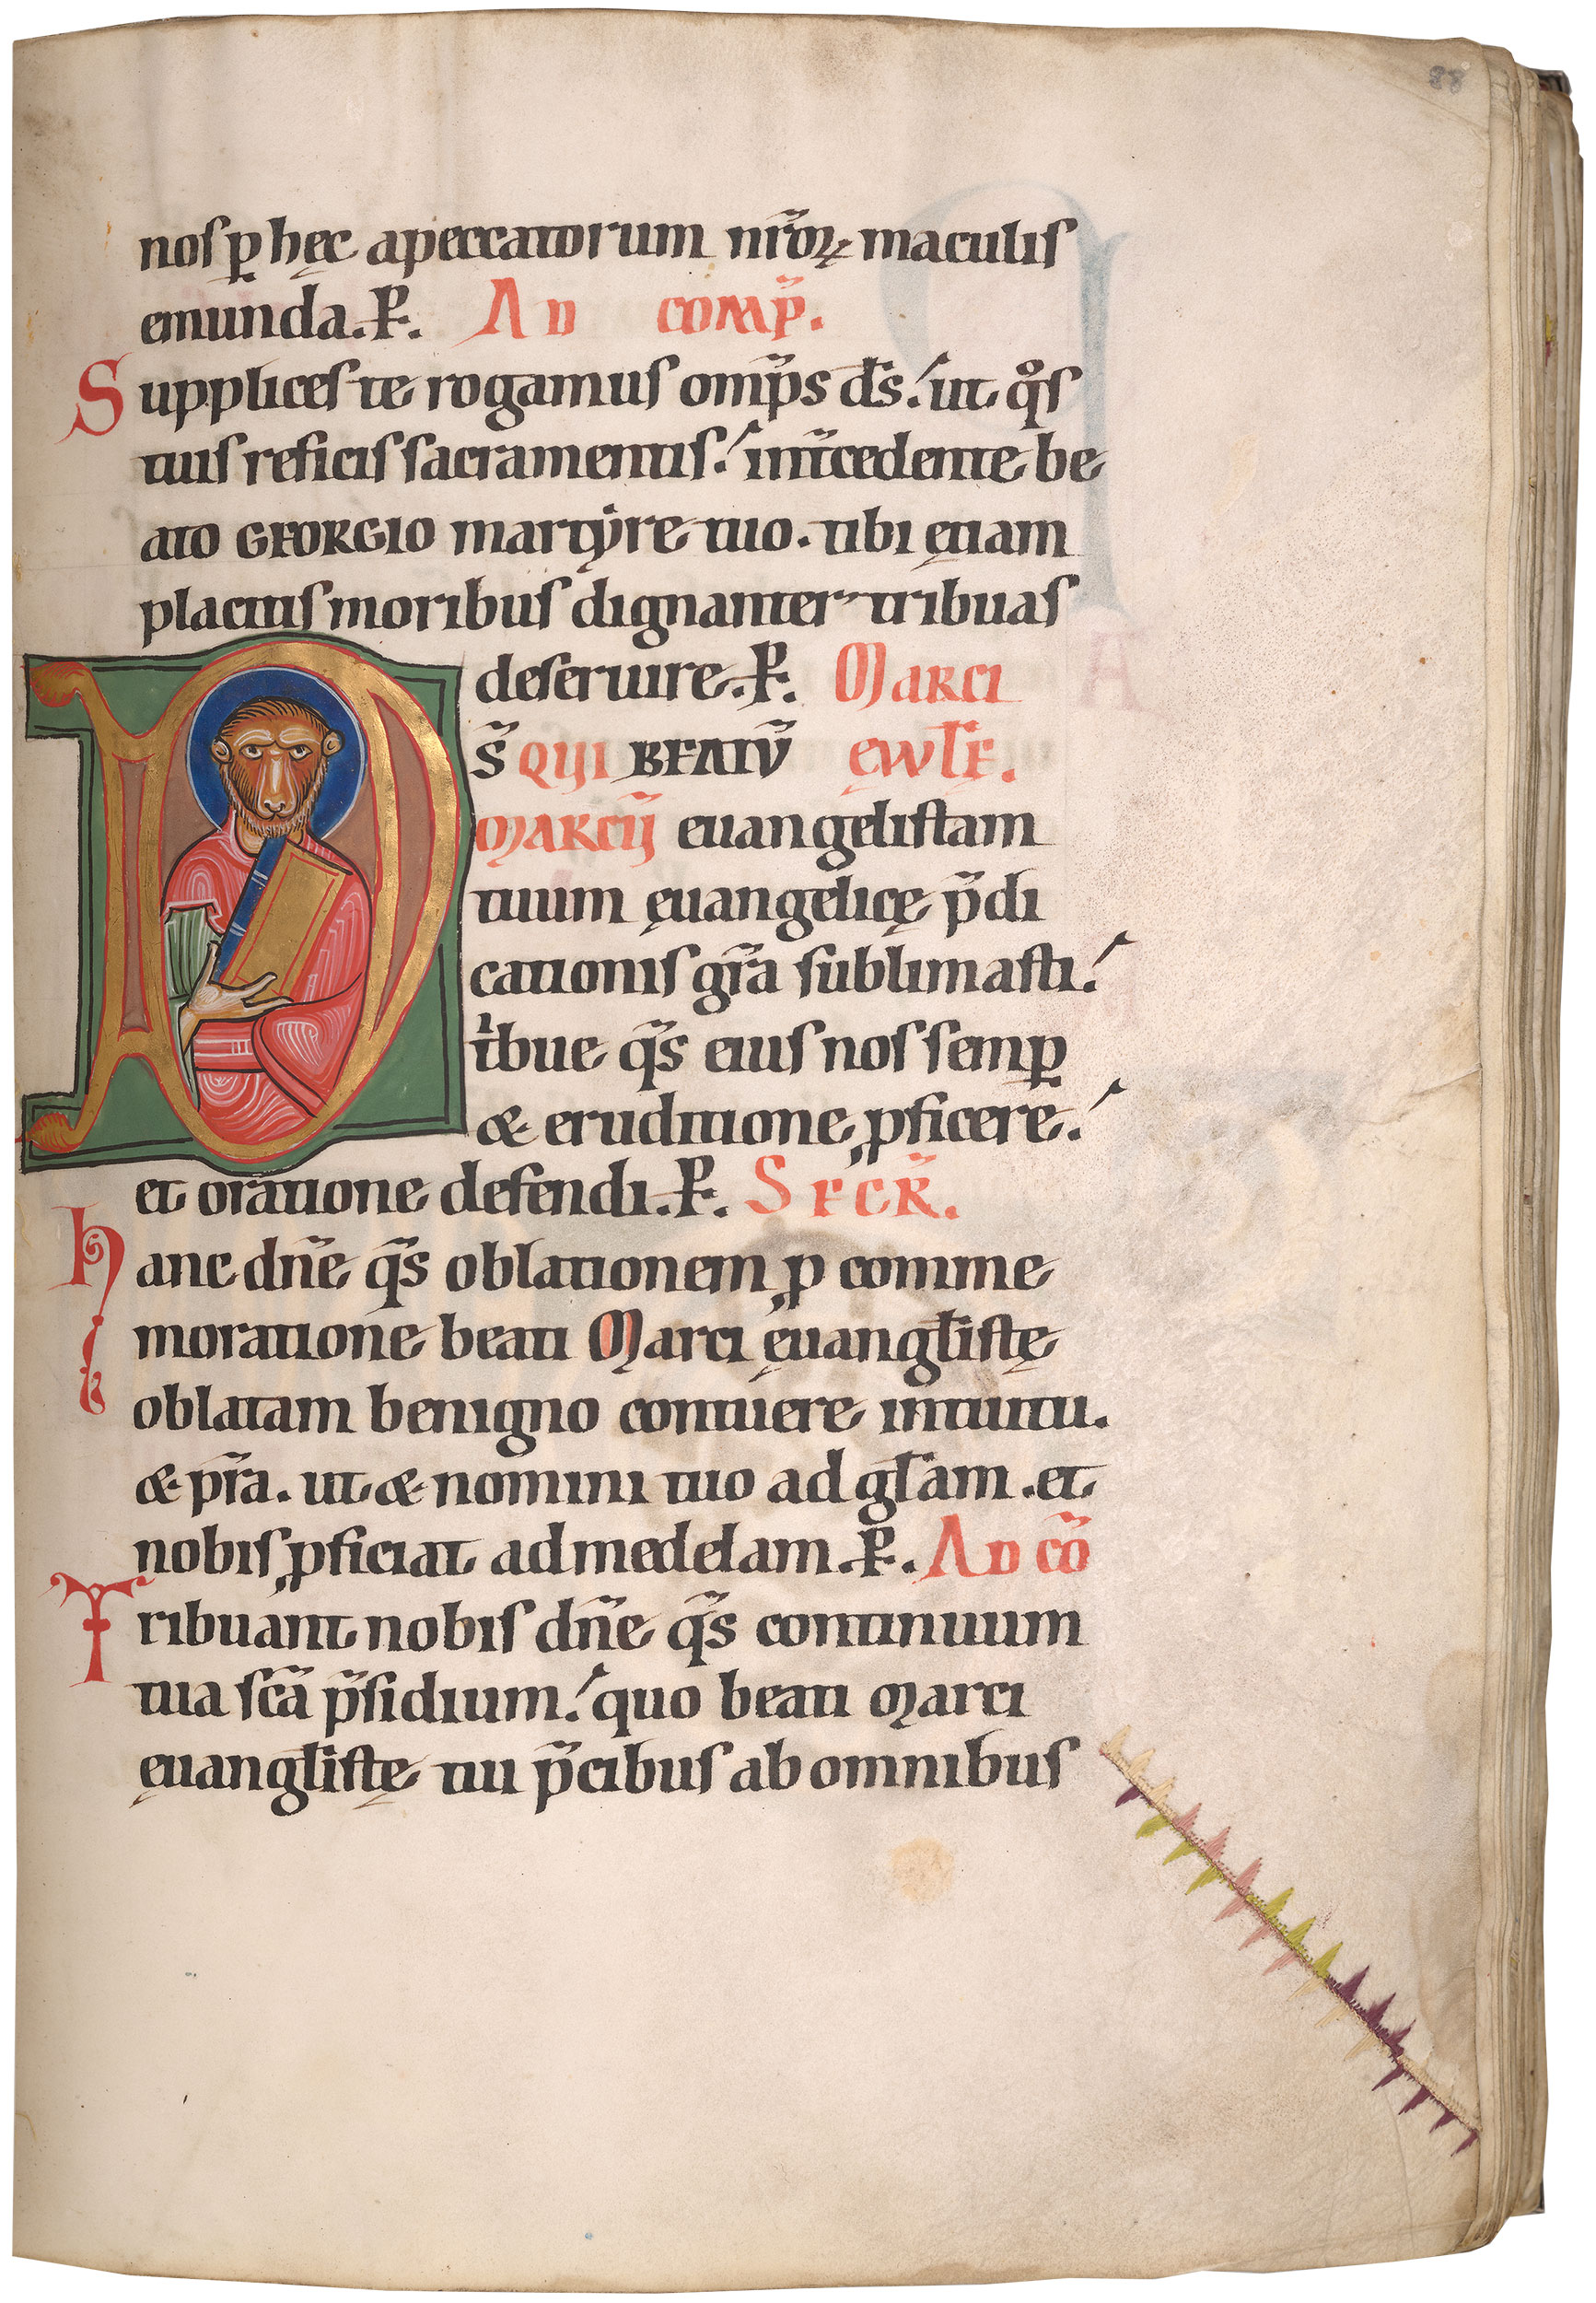 88
nos ꝑ hęc a peccatorum nr̃oꝝ maculis
emunda. P̶. AD COMP̃.
Supplices te rogamus omp̃s d̃s. ut qͦs
tuis reficis sacramentis. int̃cedente be
ato GEORGIO martẏre tuo. tibi ętiam
placitis moribus dignanter tribuas
deseruire. P̶. Marci
D S̃ QUI BEATŨ ęwl̃E.
MARCŨ euangelistam
tuum ęuangelicę p̃di
cationis gr̃a sublimasti.
tⁱbue q̃s eius nos semꝑ
& eruditione ꝓficere.
et oratione defendi. P̶. SECR̃.
Hanc dñe q̃s oblationem ꝓ comme
moratione beati Marci ęuangl̃istę
oblatam benigno contuere intuitu.
& pr̃a. ut & nomini tuo ad gl̃am. et
nobis ꝓficiat ad medelam. P̶. AD CÕ
Tribuant nobis dñe q̃s continuum
tua sc̃a p̃sidium. quo beati Marci
ęuangl̃istę tui p̃cibus ab omnibus